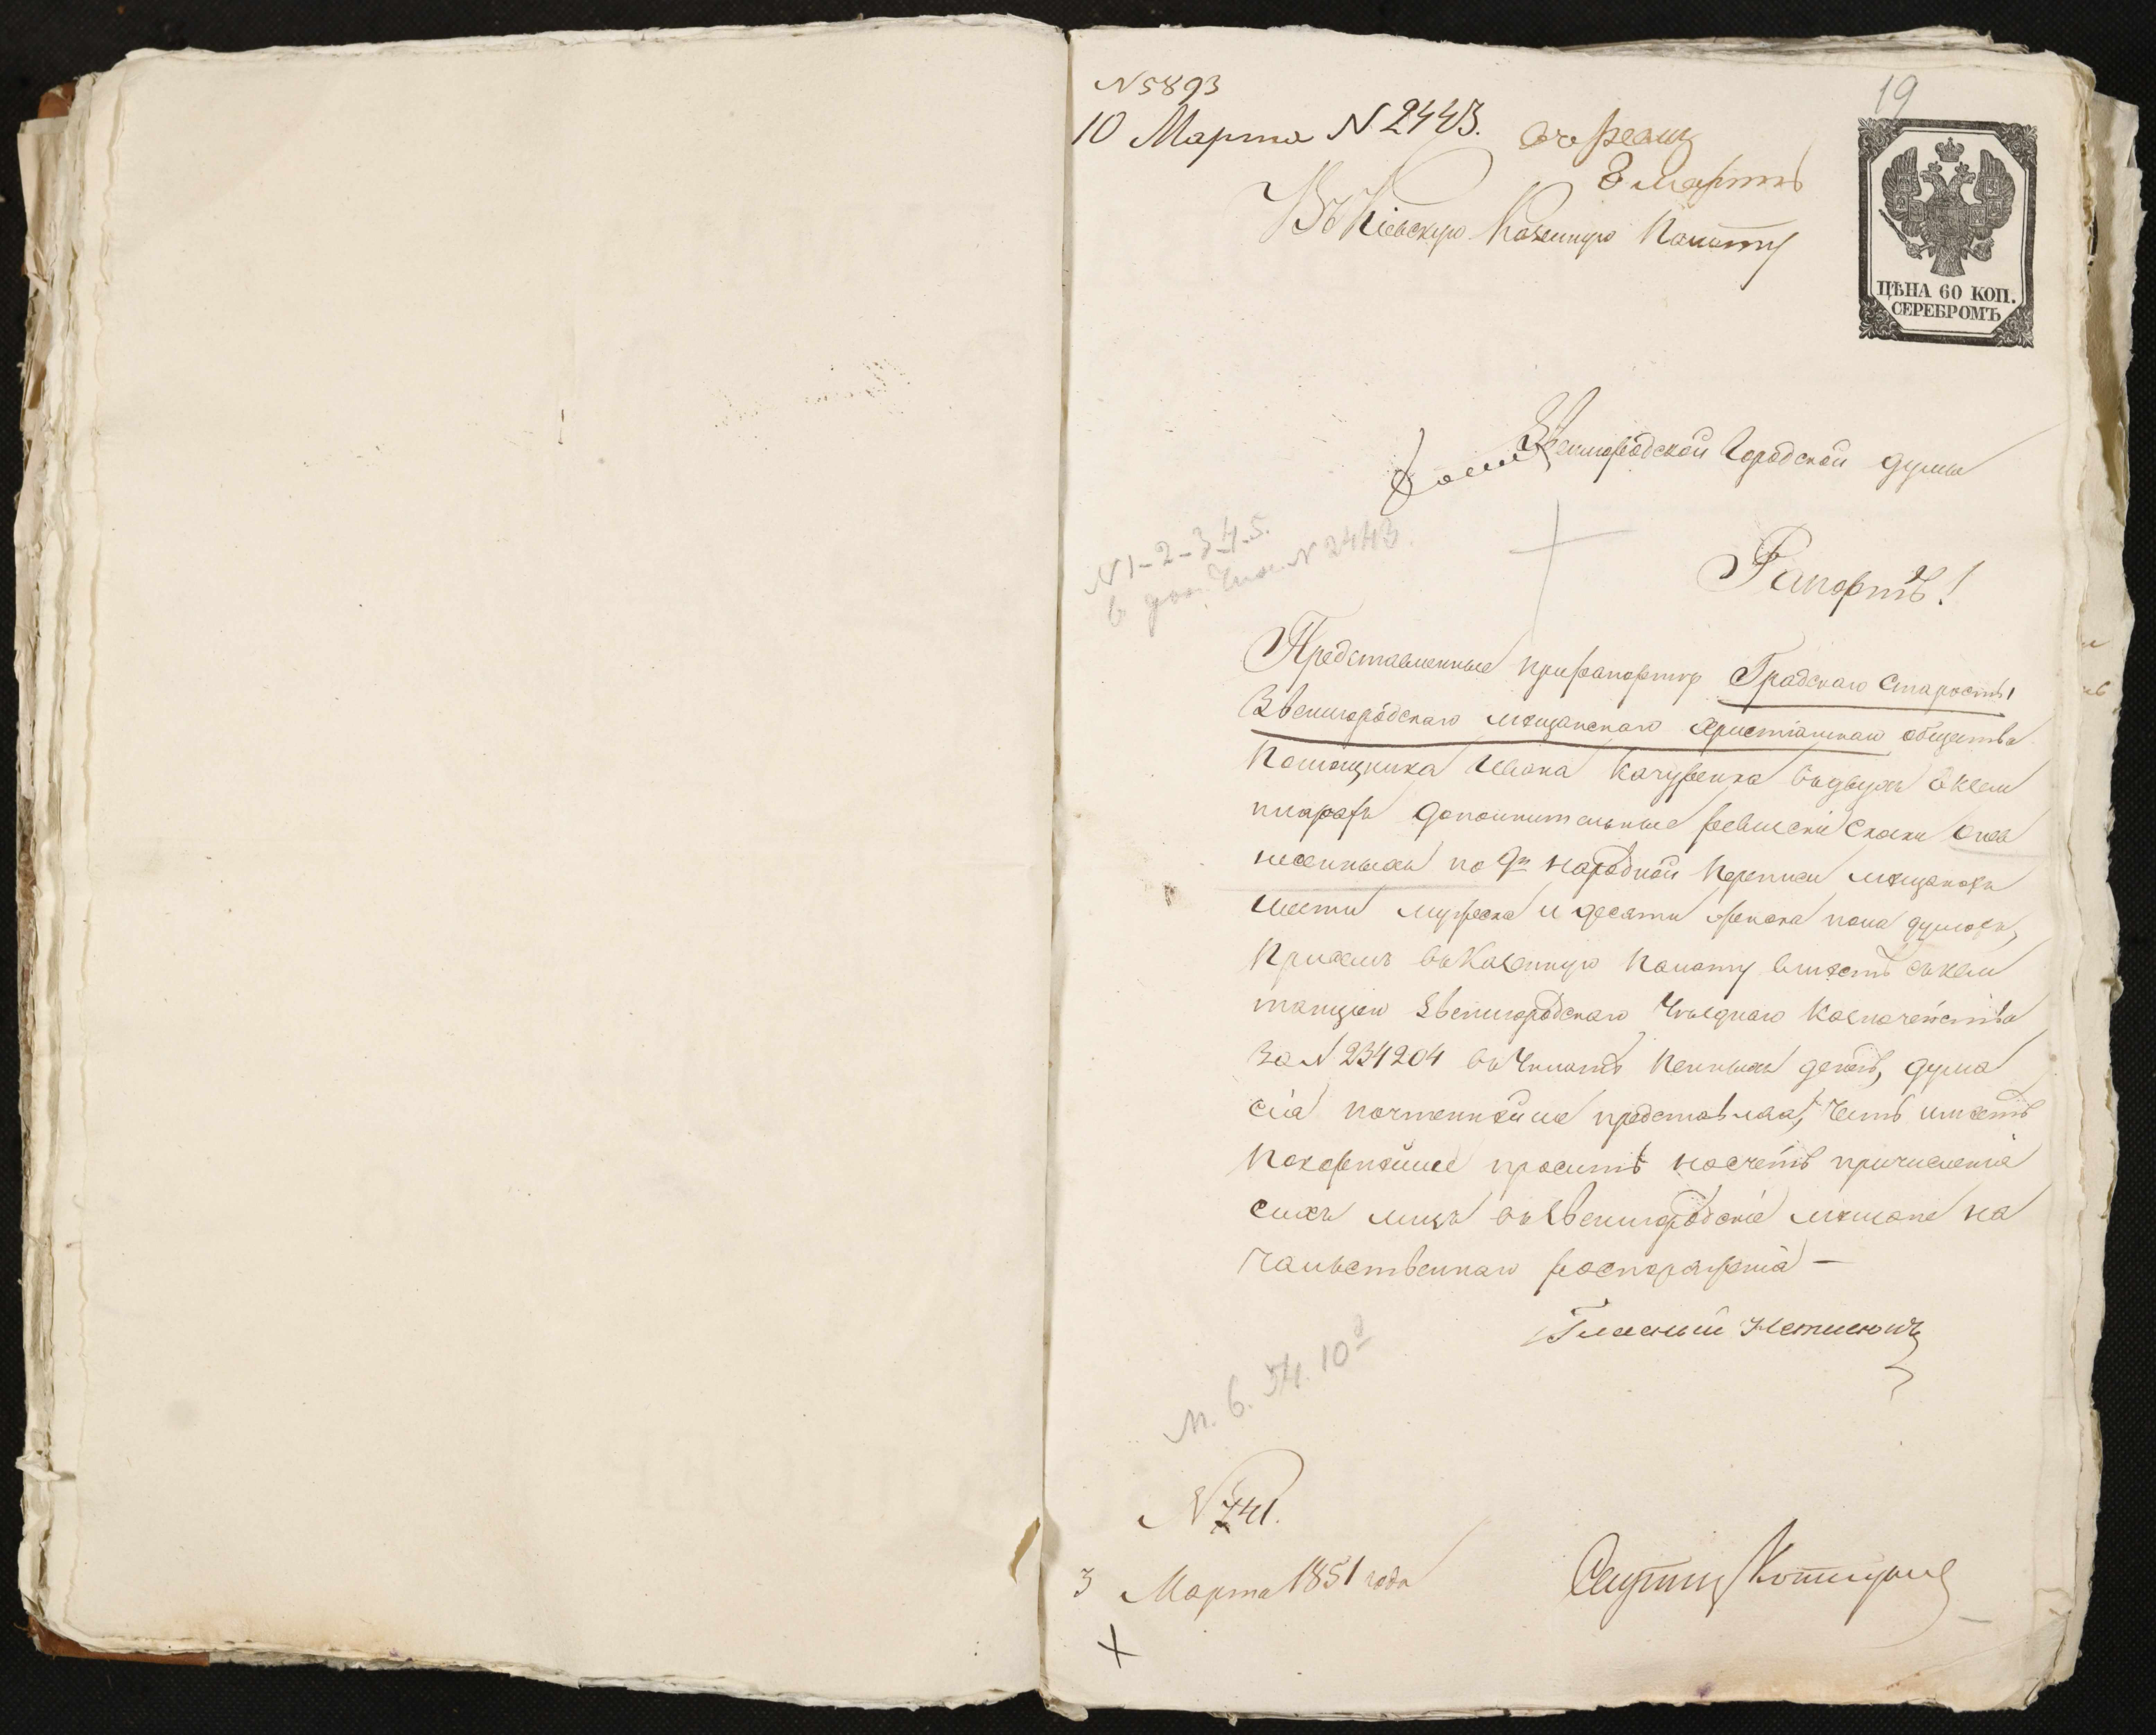 N 5893
19
10 Марта N 2443.
8 Марта
Въ Кіевскую Казенную Палату
ЦѢНА 60 КОП.
СЕРЕБРОМЪ
Звенигородской Городской думы
N 1-2-3-4-5.
N 2443.
Рапортъ!
Представленные при рапортѣ Градскаго Старосты
Звенигородскаго мѣщанскаго христіанскаго общества
Помощника Ивана Качуренка въ двухъ Екзем
плярахъ дополнительные ревизскіе сказки
по 9й народной переписи мѣщанохъ
шести мужеска и десяти женска пола душохъ,
въ Казенную Палату вмѣстѣ съ Кви
танціею Звенигородскаго Уѣзднаго Казначейства
За N 234204 денегъ, дума
сіа почтеннѣйше представляя, честь имѣетъ
покорнѣйше просить насчетъ причисленіа
сихъ лицъ въ Звенигородскіе мѣщане на
чальственнаго роспоряженіа —
Гласный
6. 54. 10
N 741.
3 Марта 1851 года